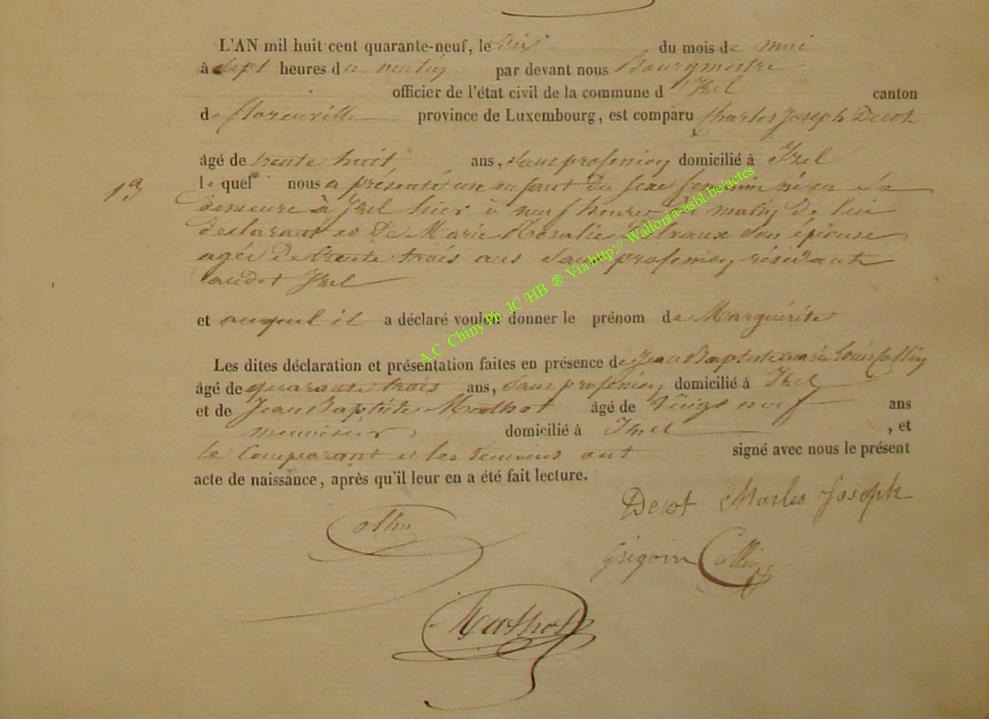 L'AN mil huit cent quarante-neuf, le dix du mois de mai
à sept heures du matin par devant nous Bourgmestre
officier de l'état civil de la commune d'Izel canton
de florenville province de Luxembourg, est comparu Charles Joseph Decot
âgé de trente huit ans, sans profession domicilié à Izel
19
lequel nous a présenté un enfant du sexe féminin né en sa
demeure à Izel hier à neuf heures du matin de lui
declarant et de Marie Rosalie son épouse
agée de trente trois ans sans profession résidante
audit Izel
et auquel il a déclaré vouloir donner le prénom de Marguérite
Les dites déclaration et présentation faites en présence de Jean Baptiste marie Louis Collin
âgé de quarante trois ans, sans profession domicilié à Izel
et de Jean Baptiste Mathot âgé de vingt neuf ans
menuisier domicilié à Izel , et
le comparant et les temoins ont signé avec nous le présent
acte de naissance, après qu'il leur en a été fait lecture.
Decot Charles Joseph
Collin
Grégoire Collin
Mathot
A.C. Chiny Ph. JC/HB ® Via http:// Wallonia-asbl.be/actes